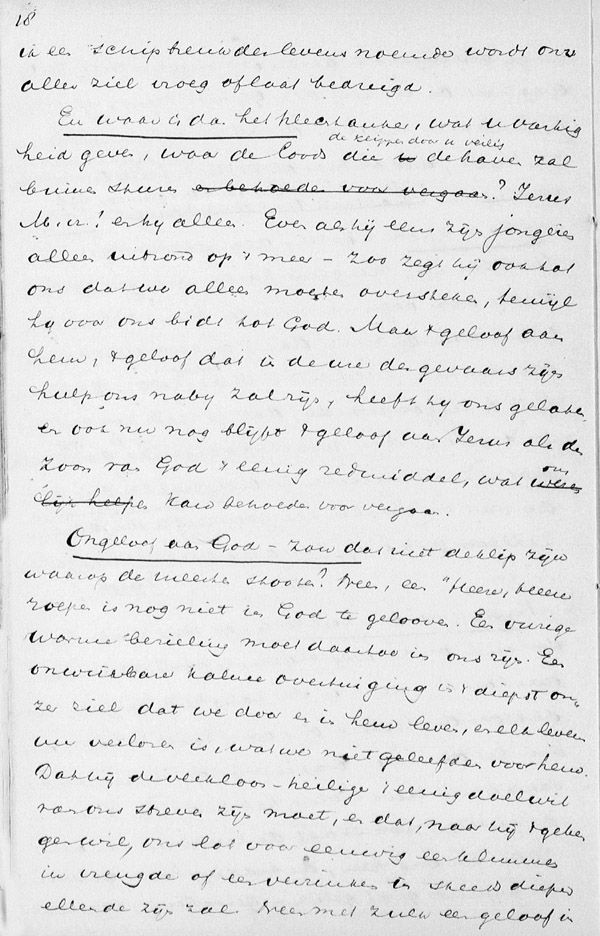 18
in een schipbreuk des levens noemde wordt onz
aller ziel vroeg of laat bedreigd.
En waar is dan het plechtanker, wat u vastig
heid geven, waar de loods die de klippen door u veilig de haven zal
binnen sturen en behoeden voor vergaan? Jezus
M. vr.! en hij alleen. Even als hij eens zijn jongeren
alleen uitzond op 't meer – zoo zegt hij ook tot
ons dat we alleen moeten oversteken, terwijl
hij voor ons bidt tot God. Maar 't geloof aan
hem, 't geloof dat in de ure des gevaars zijn
hulp ons nabij zal zijn, heeft hij ons gelaten
en ook nu nog blijft 't geloof aan Jezus als den
zoon van God 't eenig redmiddel, wat ons
helpen kan behoeden voor vergaan.
Ongeloof aan God – zou dat niet de klip zijn
waarop de meesten stooten? Neen, een "Heere, Heere
roepen is nog niet in God te gelooven. Een vurige
warme bezieling moet daartoe in ons zijn. Een
onwrikbare kalme overtuiging in 't diepst on-
ze ziel dat we door en in hem leven, en elk leven
uur verloren is, wat we niet geleefd voor hem.
Dat hij de vlekloos-heilige 't eenig doelwit
van ons streven zijn moet, en dat, naar hij 't gehen
gen wil, ons lot voor eeuwig een klimmen
in vreugde of een verzinken in steeds dieper
ellende zijn zal. Neen met zulk een geloof in